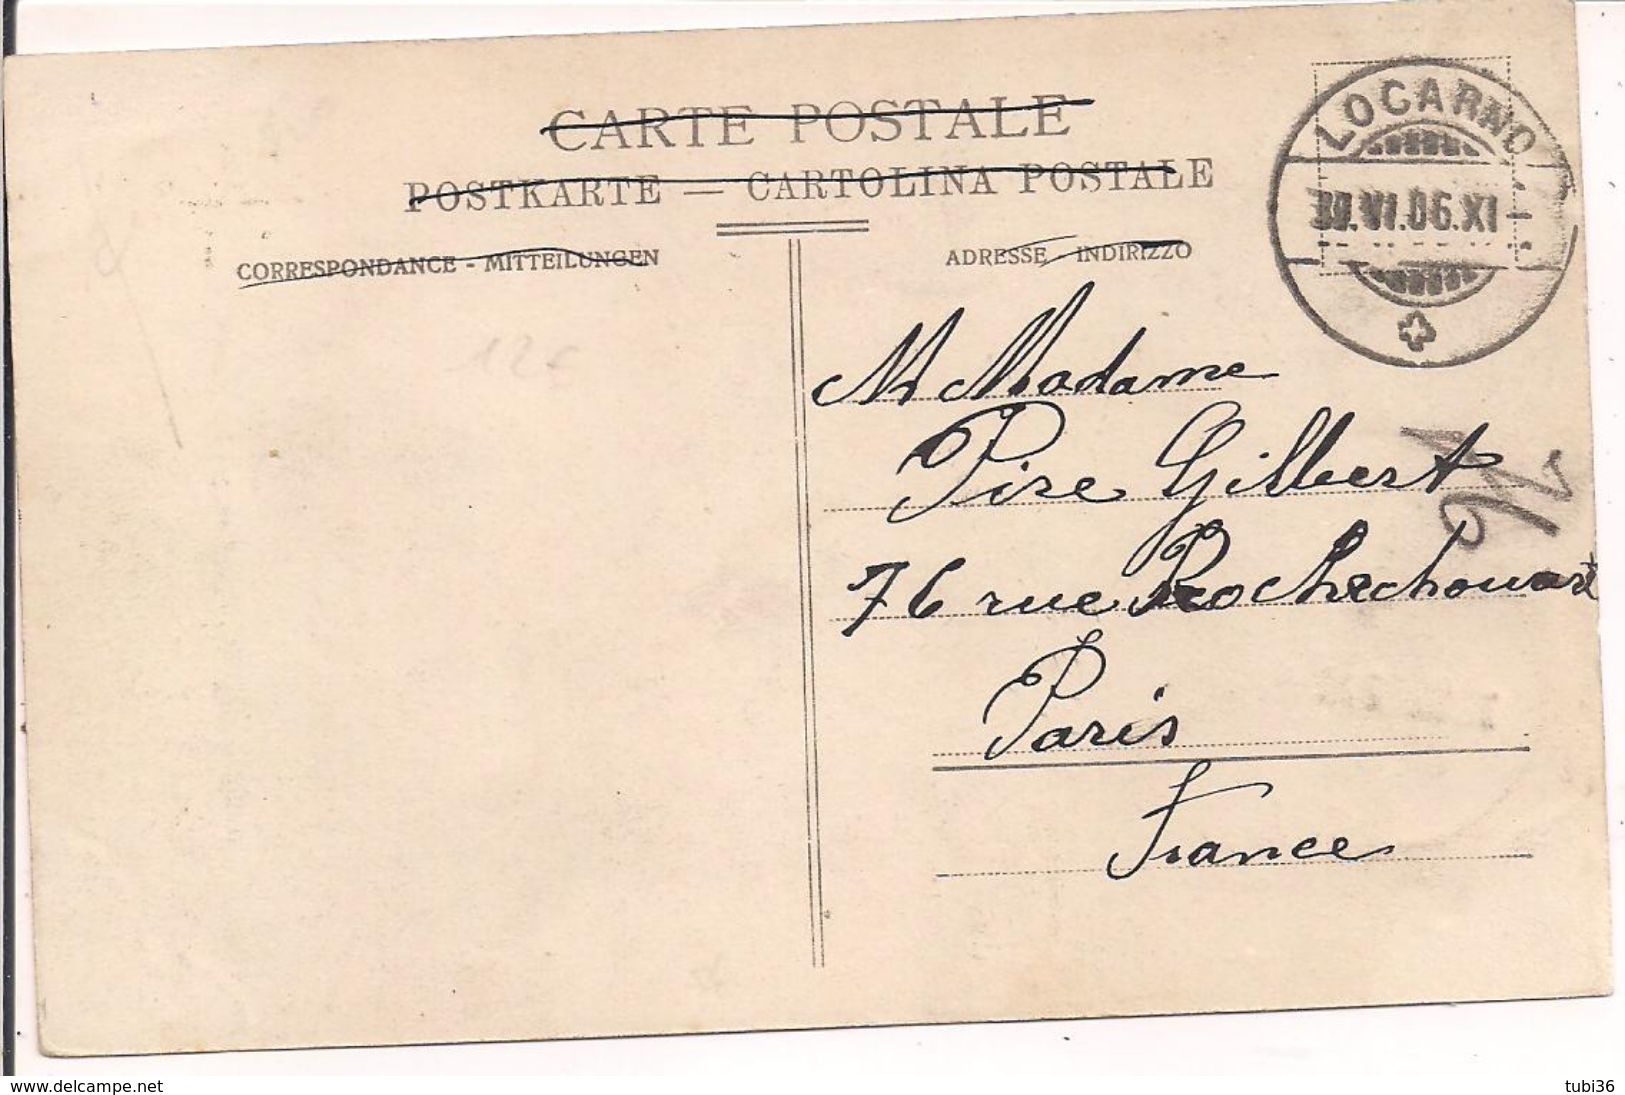 CARTE POSTALE
POSTKARTE — CARTOLINA POSTALE
CORRESPONDANCE - MITTEILUNGEN
ADRESSE - INDIRIZZO
LOCARNO
VI.06.XI
M Madame
Pire Gilbert
76 rue Rochechouart
Paris
France
www.delcampe.net
tubi36